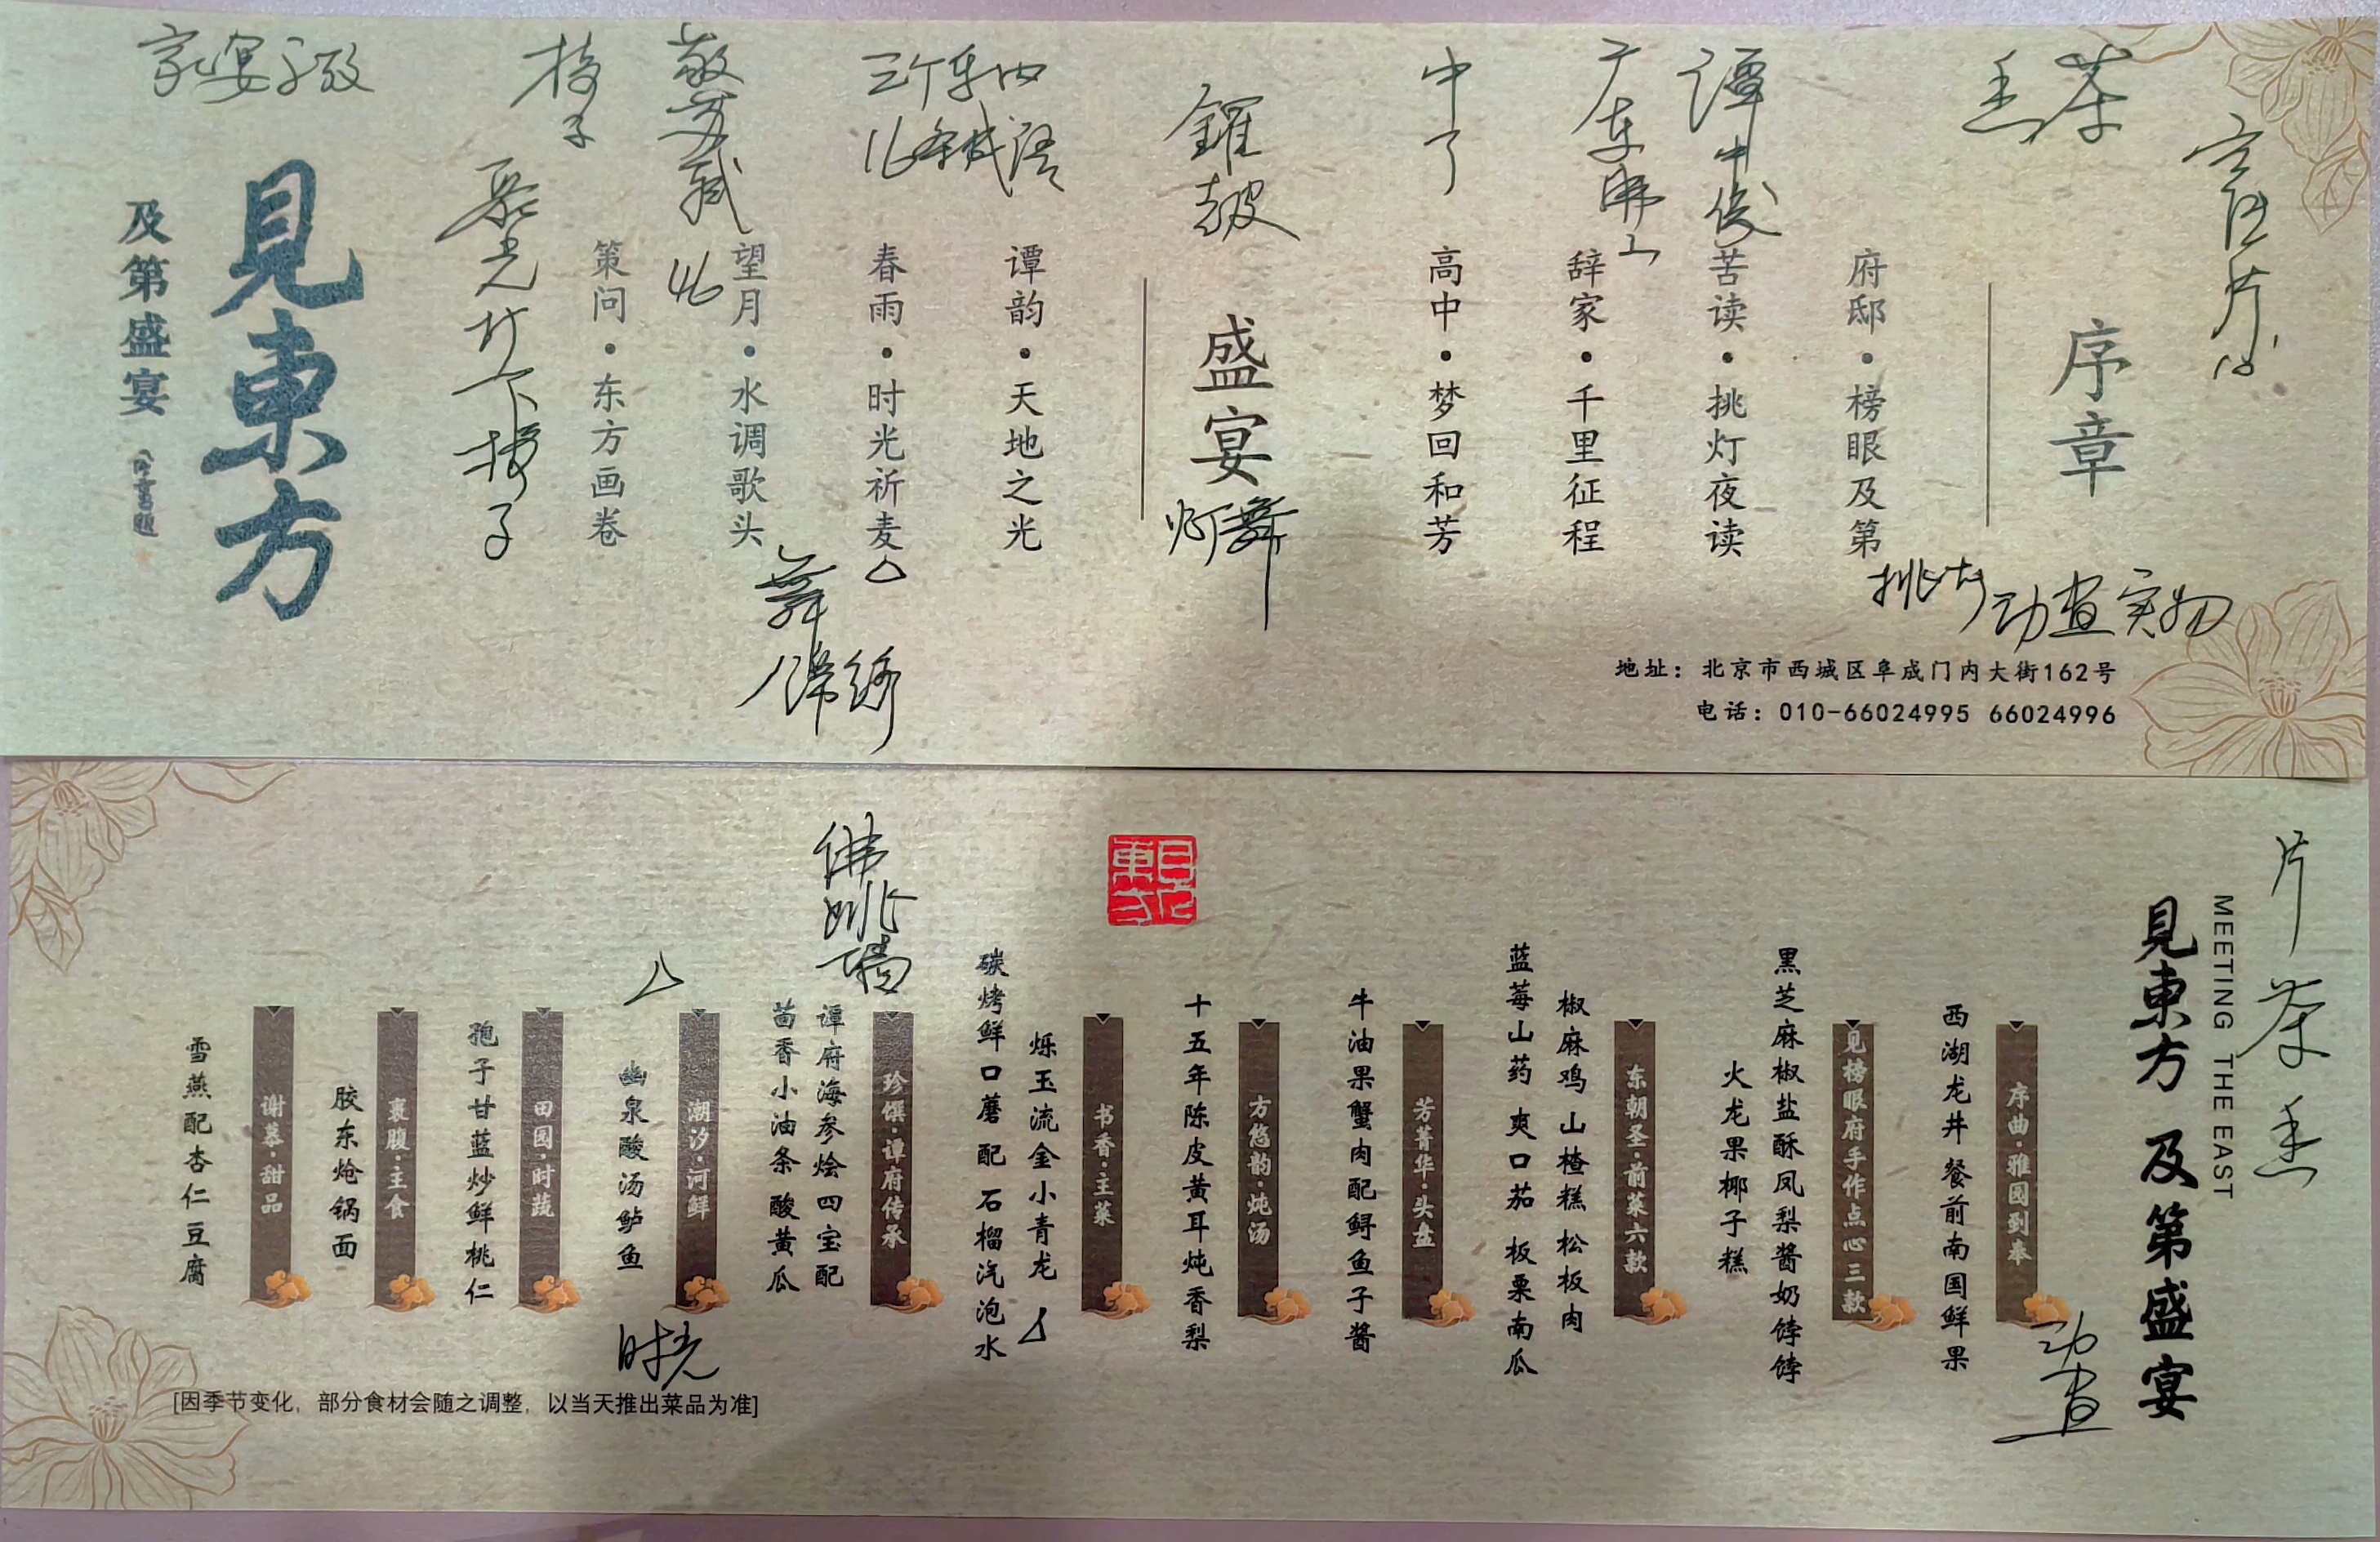 序章
府邸·榜眼及第
苦读·挑灯夜读
辞家·千里征程
高中·梦回和芳
盛宴
谭韵·天地之光
春雨·时光祈麦
望月·水调歌头
策问·东方画卷
見東方
及第盛宴
地址：北京市西城区阜成门内大街162号
电话：010-66024995 66024996
茶
谭中俊
广东佛山
中了
锣鼓
灯舞
16条成语
舞
椅子
动画实物
片
茶
MEETING THE EAST
見東方 及第盛宴
动画
序曲·雅园到奉
西湖龙井 餐前南国鲜果
见榜眼府手作点心三款
黑芝麻椒盐酥凤梨酱奶饽饽
火龙果椰子糕
东朝圣·前菜六款
椒麻鸡 山楂糕 松板肉
蓝莓山药 爽口茄 板栗南瓜
芳菁华·头盘
牛油果蟹肉配鲟鱼子酱
方悠韵·炖汤
十五年陈皮黄耳炖香梨
书香·主菜
烁玉流金小青龙
碳烤鲜口蘑 配 石榴汽泡水
珍馔·谭府传承
谭府海参烩四宝配
茴香小油条 酸黄瓜
佛跳墙
潮汐·河鲜
幽泉酸汤鲈鱼
时光
田园·时蔬
孢子甘蓝炒鲜桃仁
裹腹·主食
胶东炝锅面
谢慕·甜品
雪燕配杏仁豆腐
[因季节变化，部分食材会随之调整，以当天推出菜品为准]